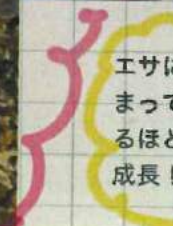 エサに
まって
るほと
成長!